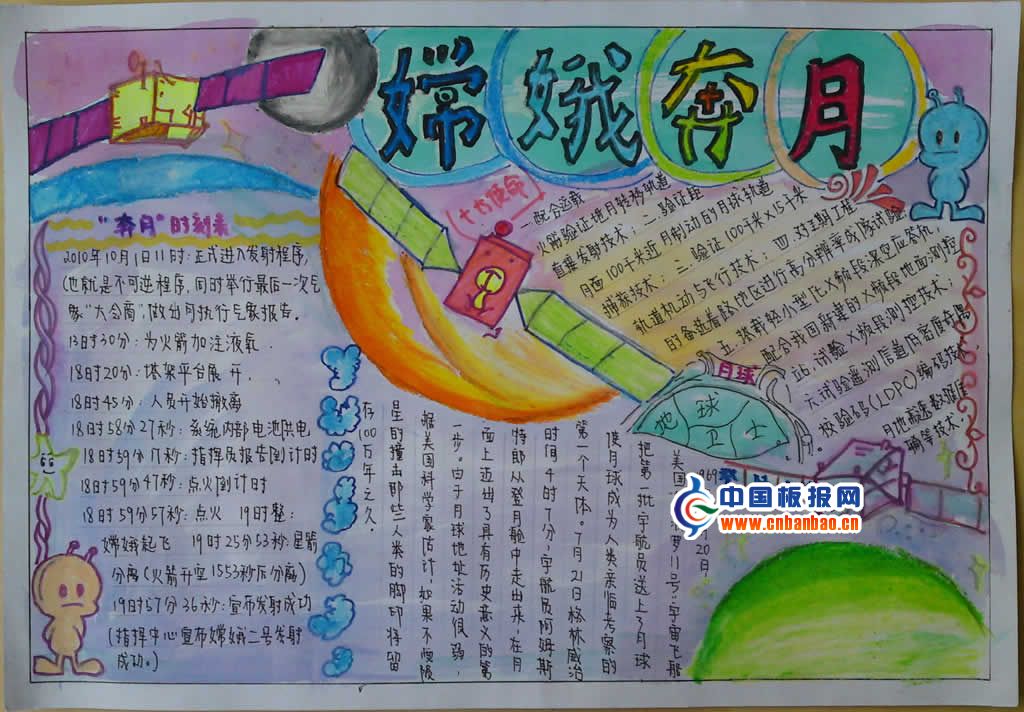 嫦娥奔月
"奔月"时刻表
2010年10月1日11时:正式进入发射程序,
(也就是不可逆程序,同时举行最后一次气
象"大会商",做出可执行气象报告。
13时30分:为火箭加注液氧.
18时20分:塔架平台展开.
18时45分:人员开始撤离
18时58分27秒:系统内部电池供电
18时59分17秒:指挥员报告倒计时
18时59分47秒:点火倒计时
18时59分57秒:点火 19时整:
嫦娥起飞 19时25分53秒:星箭
分离(火箭升空1553秒后分离)
19时57分36秒:宣布发射成功
(指挥中心宣布嫦娥二号发射
成功。)
十大使命
一.配合运载
火箭验证地月转移轨道
直接发射技术:二.验证距
月面100千米近月制动的月球轨道
捕获技术:三.验证100千米×15千米
轨道机动与飞行技术:四.对二期工程
的备选着陆地区进行高分辨率成像试验
五.搭载轻小型化X频段深空应答机
配合我国新建的X频段地面测控
站,试验X频段测控技术:
六.试验遥测信道月高度奇偶
校验码(LDPC)编码技
月地高速数据库
辅等技术.
月球
地球卫士
20日
美国
11号:宇宙飞船
把第一批宇航员送上了月球
使月球成为人类亲临考察的
第一个天体。7月21日格林威治
时间4时7分,宇航员阿姆斯
特郎从登月舱中走出来,在月
面上迈出了具有历史意义的第
一步。由于月球地址活动很弱,
据美国科学家估计,如果不受陨
星的撞击那些人类的脚印将留
存100万年之久.
中国板报网
www.cnbanbao.cn